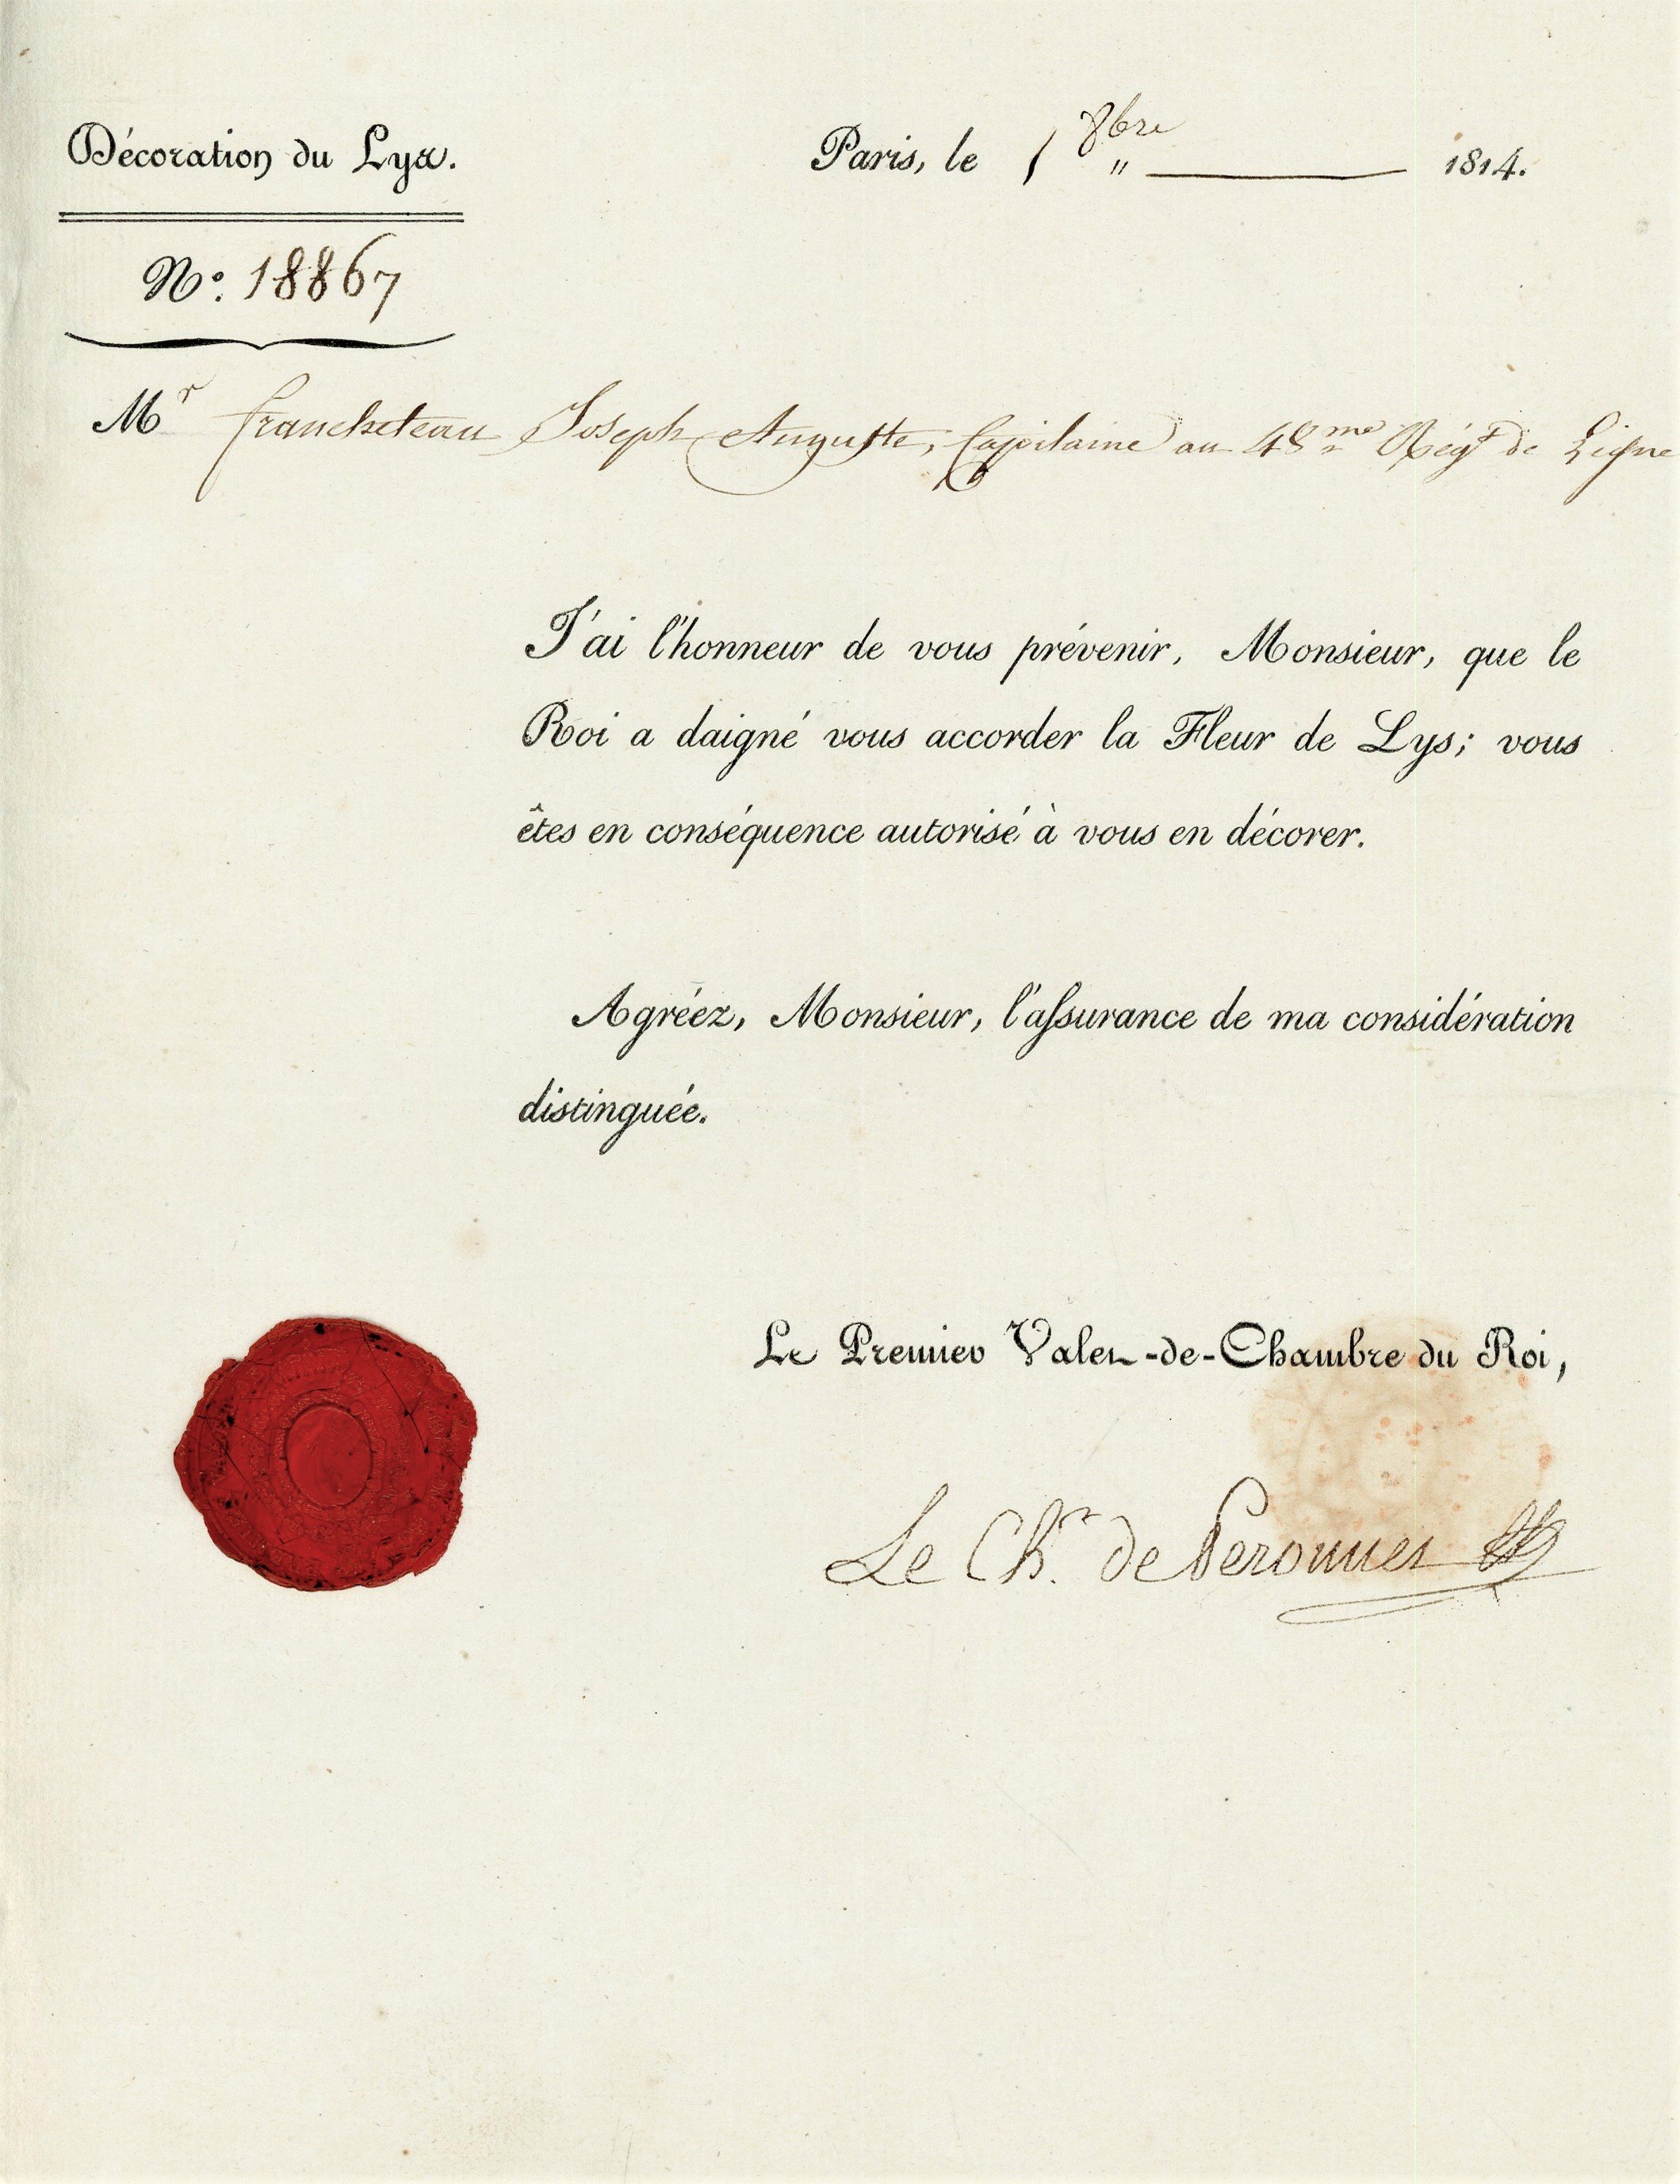 Décoration du Lys.
Paris, le 1 8bre " 1814.
N°. 18867
Mr francheteau Joseph Auguste, Capitaine au 48me Régt de Ligne
J'ai l'honneur de vous prévenir, Monsieur, que le
Roi a daigné vous accorder la Fleur de Lys; vous
êtes en conséquence autorisé à vous en décorer.
Agréez, Monsieur, l'aſsurance de ma considération
distinguée.
Le Premier Valet-de-Chambre du Roi,
Le Chr. de Peronnet